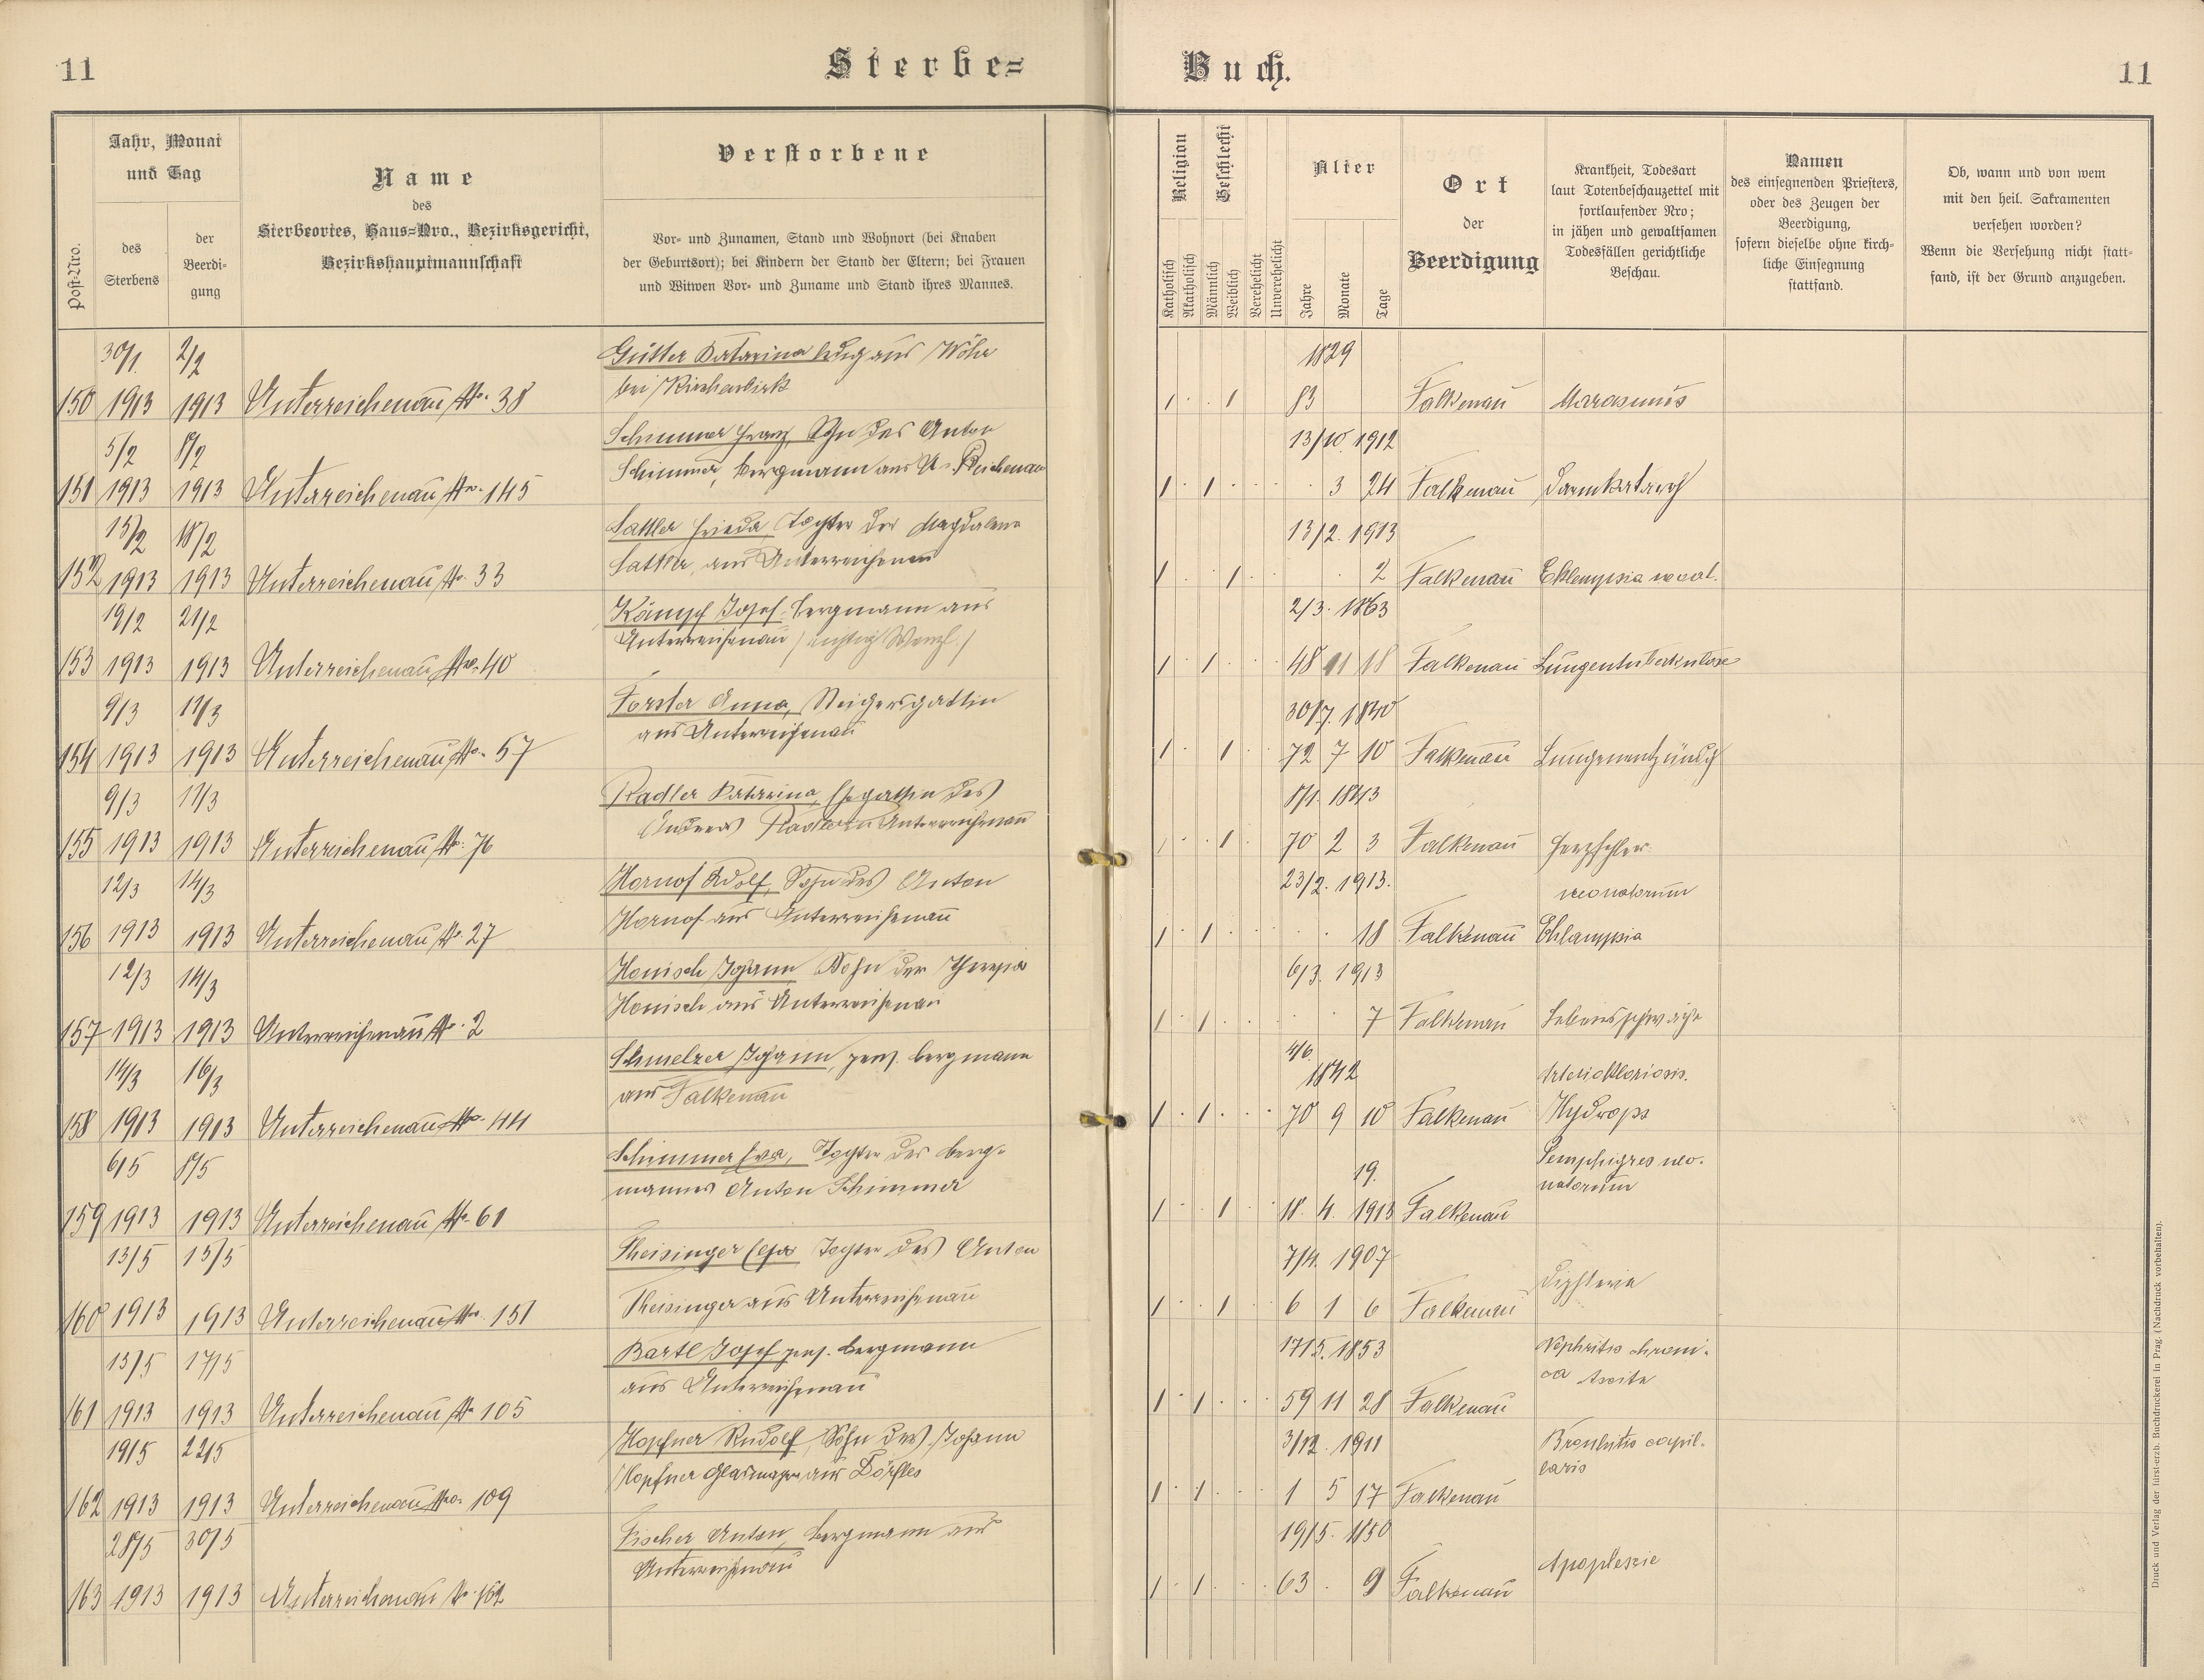 11
Sterbe=
Buch.
11
Post-Nro.
Jahr, Monat
und Tag
des
Sterbens
der
Beerdi-
gung
Name
des
Sterbeortes, Haus=Nro., Bezirksgericht,
Bezirkshauptmannschaft
Verstorbene
Vor- und Zunamen, Stand und Wohnort (bei Knaben
der Geburtsort); bei Kindern der Stand der Eltern; bei Frauen
und Witwen Vor- und Zuname und Stand ihres Mannes.
Religion
Katholisch
Akatholisch
Geschlecht
Männlich
Weiblich
Verehelicht
Unverehelicht
Alter
Jahre
Monate
Tage
Ort
der
Beerdigung
Krankheit, Todesart
laut Totenbeschauzettel mit
fortlaufender Nro;
in jähen und gewaltsamen
Todesfällen gerichtliche
Beschau.
Namen
des einsegnenden Priesters,
oder des Zeugen der
Beerdigung,
sofern dieselbe ohne kirch-
liche Einsegnung
stattfand.
Ob, wann und von wem
mit den heil. Sakramenten
versehen worden?
Wenn die Versehung nicht statt-
fand, ist der Grund anzugeben.
30/1. 2/2 Gütter Katarina ledig aus Wöhr 1829
bei Kirchenbirk
150 1913 1913 Unterreichenau No. 38 83 Falkenau Marasmus
5/2 8/2 Schimmer Franz, Sohn des Anton 13/10. 1912
Schimmer, Bergmann aus U. Reichenau
151 1913 1913 Unterreichenau No. 145 3 24 Falkenau Darmkatarrh
15/2 18/2 Sattler Frieda Tochter der Magdalena 13/2. 1913
Sattler, aus Unterreichenau
152 1913 1913 Unterreichenau No. 33 2 Falkenau
19/2 21/2 Kämpf Josef, Bergmann aus 2/3. 1863
Unterreichenau / richtig Wenzl. /
153 1913 1913 Unterreichenau No. 40 48 11 18 Falkenau Lungentuberkulose
9/3 12/3 Forster Anna, Steigersgattin 30/7. 1840
aus Unterreichenau
154 1913 1913 Unterreichenau No. 57 72 7 10 Falkenau Lungenentzündg
9/3 11/3 Radler Katarina, Ehegattin des 8/1. 1843
Andreas Radler aus Unterreichenau
155 1913 1913 Unterreichenau No. 76 70 2 3 Falkenau Herzfehler
12/3 14/3 Hornof Adolf, Sohn des Anton 23/2. 1913. neonatorum
Hornof aus Unterreichenau
156 1913 1913 Unterreichenau No. 27 18 Falkenau Eklampsia
12/3 14/3 Honisch Johann Sohn der Theresia 6/3. 1913
Honisch aus Unterreichenau
157 1913 1913 Unterreichenau No. 2 7 Falkenau Lebensschwäche
14/3 16/3 Schmelzer Johann, pens. Bergmann 4/6. 1842
aus Falkenau
158 1913 1913 Unterreichenau No. 44 70 9 10 Falkenau Hydrops
6/5 8/5 Schimmer Eva, Tochter des Berg- 19.
mannes Anton Schimmer natorum
159 1913 1913 Unterreichenau No. 61 18. 4. 1913 Falkenau
13/5 15/5 Theisinger Tochter des Anton 7/4. 1907
Theisinger aus Unterreichenau Diphterie
160 1913 1913 Unterreichenau No. 151 6 1 6 Falkenau
15/5 17/5 Bartl Josef pens. Bergmann 17/5. 1853 Nephritis chroni-
aus Unterreichenau ca Ascite
161 1913 1913 Unterreichenau No. 105 59 11 28 Falkenau
19/5 22/5 Hopfner Rudolf, Sohn des Johann 3/12. 1911 Bronhitis capil-
Hopfner Glasmacher aus Dörfles laris
162 1913 1913 Unterreichenau No. 109 1 5 17 Falkenau
28/5 30/5 Fischer Anton, Bergmann aus 19/5. 1850
Unterreichenau Apoplexie
163 1913 1913 Unterreichenau No. 162 63 9 Falkenau
Druck und Verlag der fürst-erzb. Buchdruckerei in Prag. (Nachdruck vorbehalten).